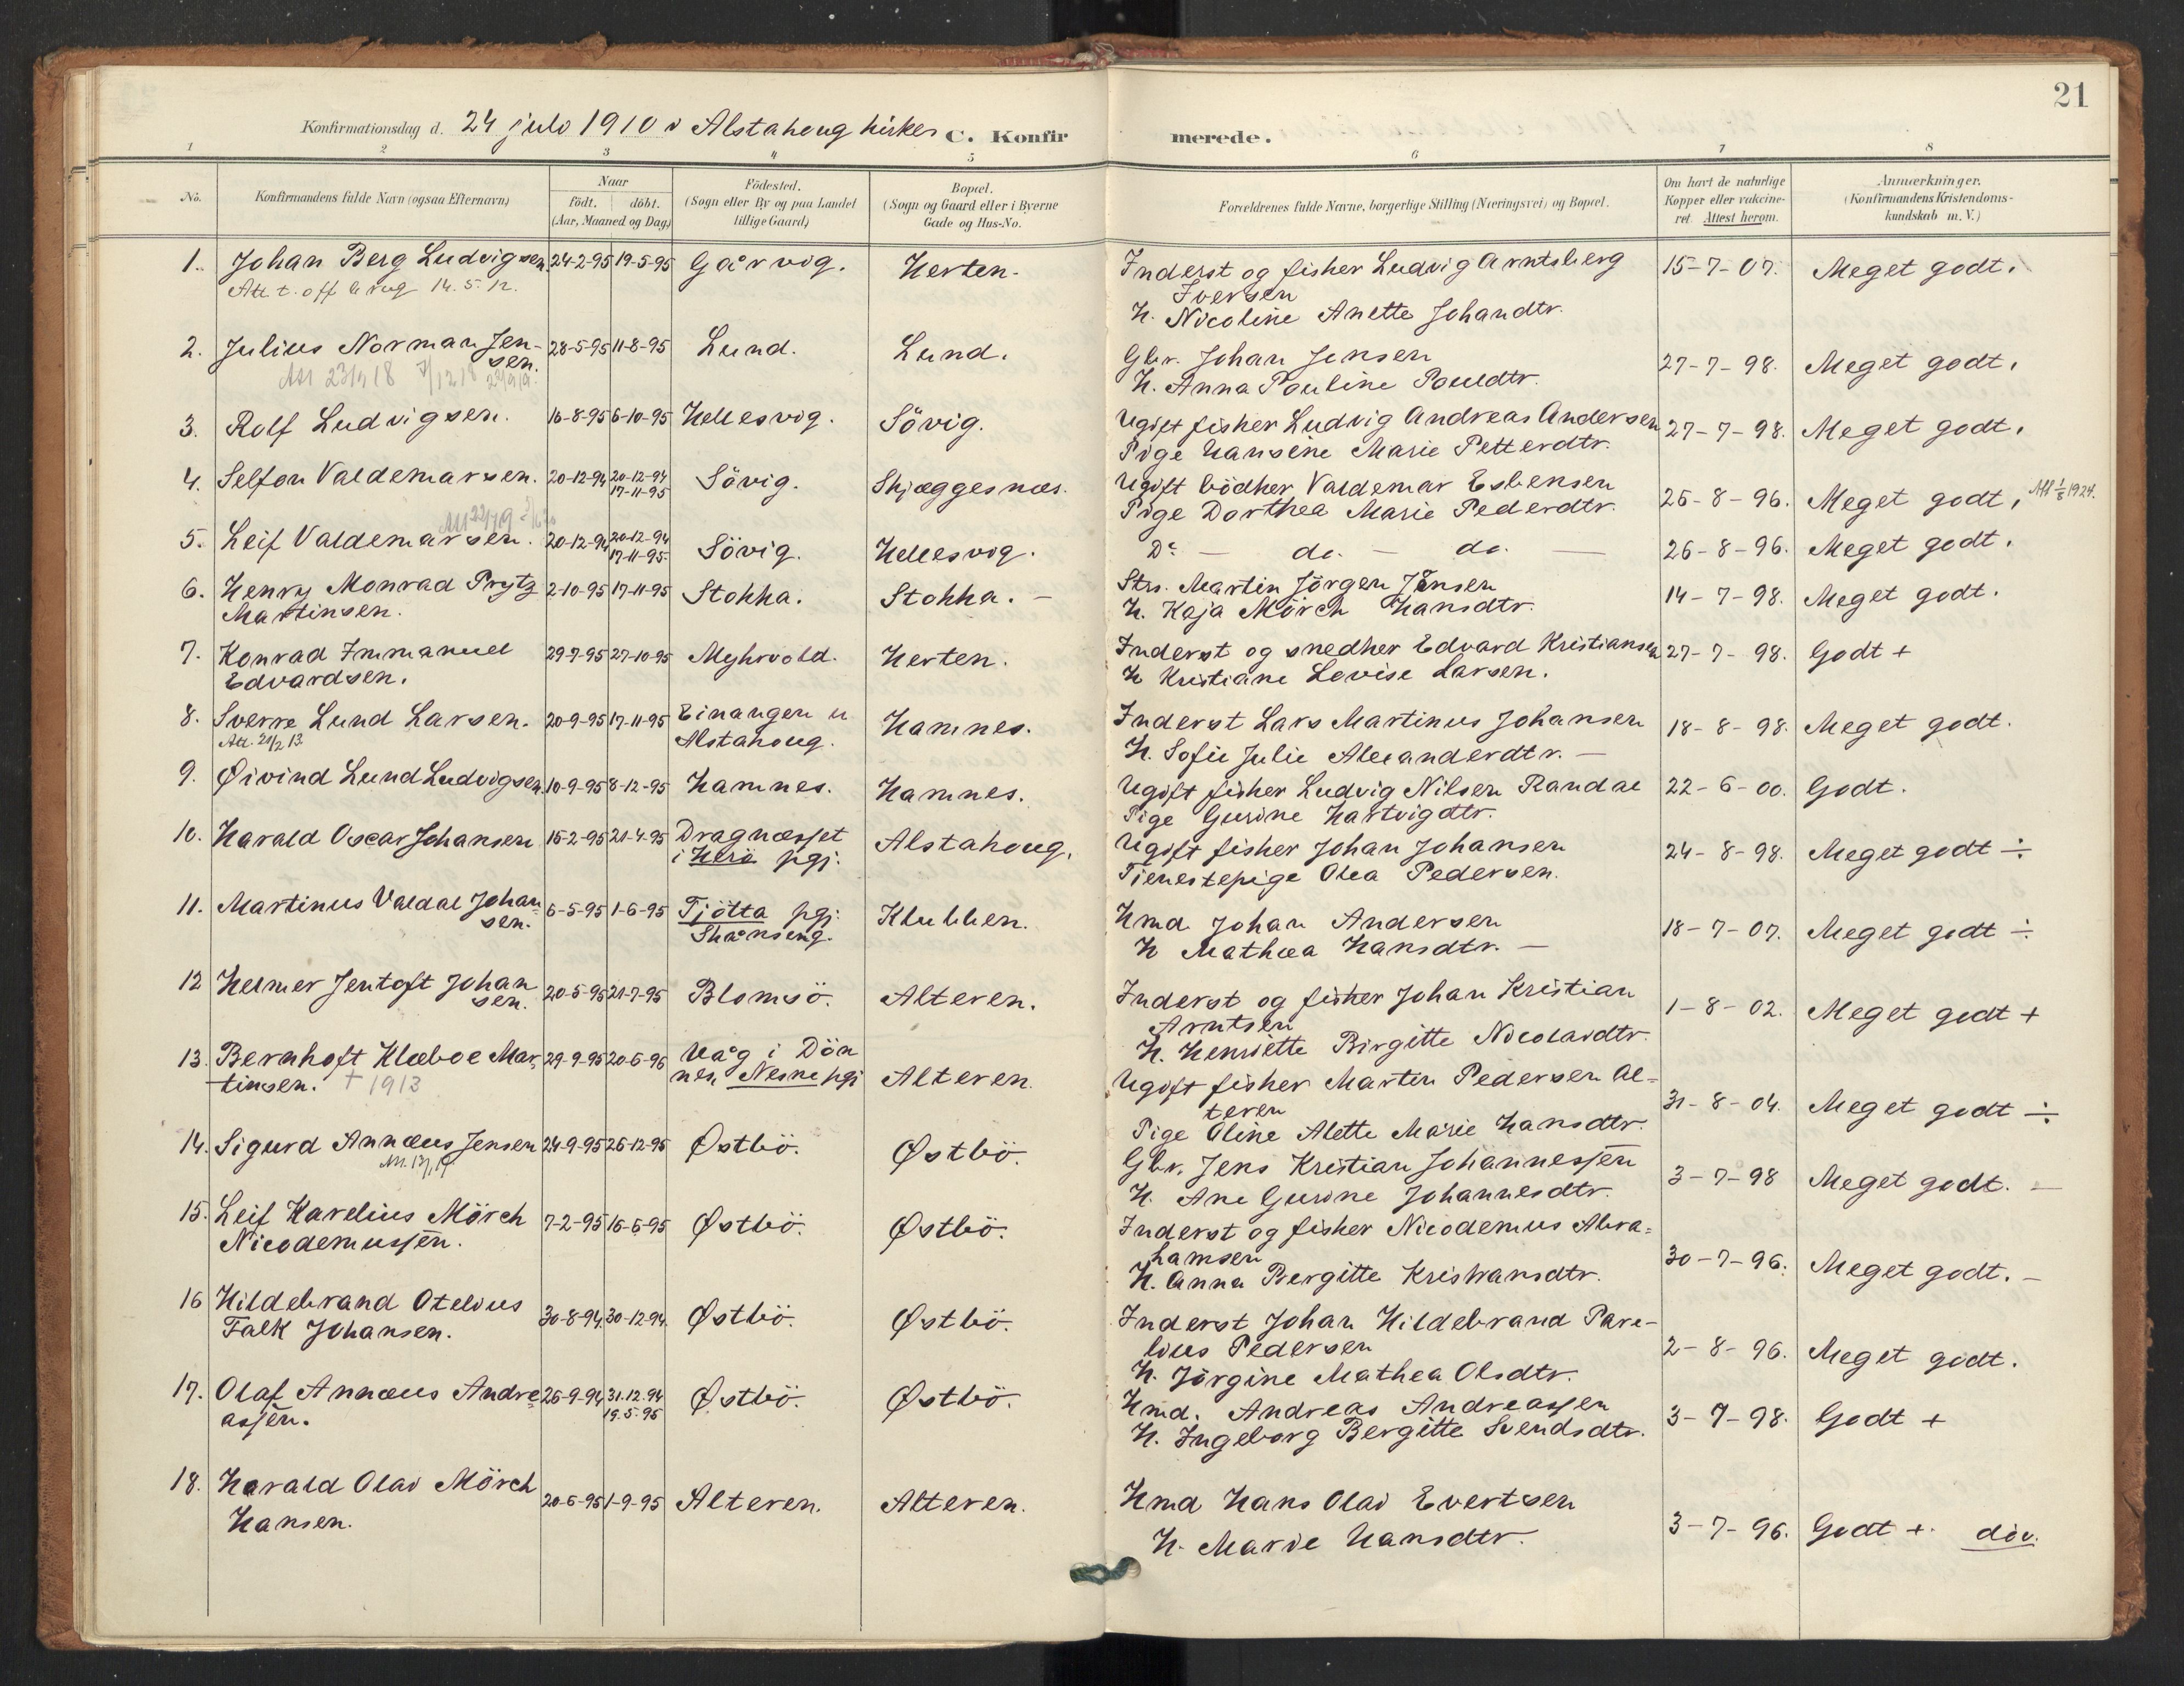 21
Konfirmationsdag d. 24 juli 1910 i Alstahoug kirke. C. Konfirmerede.
1 2 3 4 5 6 7 8
No. Konfirmandens fulde Navn (ogsaa Efternavn) Naar født. døbt. (Aar, Maaned og Dag) Födested. (Sogn eller By og paa Landet tillige Gaard) Bopæl. (Sogn og Gaard eller i Byerne Gade og Hus-No. Forældrenes fulde Navne, borgerlige Stilling (Næringsvei) og Bopæl. Om havt de naturlige Kopper eller vakcineret. Attest herom. Anmærkninger. (Konfirmandens Kristendomskundskab m. V.)
1. Johan Berg Ludvigsen 24-2-95 19-5-95 Gårvig. Herten. Inderst og fisker Ludvig Arntsberg 15-7-07. Meget godt.
Att t. off brug 14.5.12. Iversen
H. Nicoline Anette Johandtr.
2. Julius Norman Jen- 28-5-95 11-8-95 Lund. Lund. Gbr. Johan Jensen 27-7-98. Meget godt.
sen. H. Anna Pauline Pouldtr.
3. Rolf Ludvigsen. 16-8-95 6-10-95 Hellesvig. Sövig. Ugift fisker Ludvig Andreas Andersen 27-7-98. Meget godt.
Pige Hansine Marie Petterdtr.
4. Selfon Valdemarsen. 20-12-94 20-12-94 Sövig. Skjæggesnæs. Ugift bödker Valdemar Esbensen 26-8-96. Meget godt. Att 1/8 1924.
17-11-95 Pige Dorthea Marie Pederdtr.
5. Leif Valdemarsen. 20-12-94 20-12-94 Sövig. Hellesvig. Do — do. — do. — 26-8-96. Meget godt.
17-11-95
6. Henry Monrad Prytz 2-10-95 17-11-95 Stokka. Stokka. Strs. Martin Jörgen Jensen 14-7-98. Meget godt.
Martinsen. H. Kaja Mörch Hansdtr.
7. Konrad Immanuel 29-7-95 27-10-95 Myhrvold. Herten. Inderst og snedker Edvard Kristiansen 27-7-98. Godt +
Edvardsen. H Kristiane Lovise Larsen.
8. Sverre Lund Larsen. 20-9-95 17-11-95 Einangen u Hamnes. Inderst Lars Martinus Johansen 18-8-98. Meget godt.
Att. 21/2 13 Alstahoug. H. Sofie Julie Alexanderdtr. —
9. Øivind Lund Ludvigsen. 10-9-95 8-12-95 Hamnes. Hamnes. Ugift fisker Ludvig Nilsen Randal 22-6-00. Godt.
Pige Gurine Hartvigdtr.
10. Harald Oscar Johansen 15-2-95 21-4-95 Dragnæsset Alstahoug. Ugift fisker Johan Johansen 24-8-98. Meget godt ÷
i Herö pgj. Tjenestepige Olea Pedersen.
11. Martinus Valdal Johan- 6-5-95 1-6-95 Tjötta pgj. Klubben. Hmd. Johan Andersen 18-7-07. Meget godt ÷
sen. Skånseng. H Mathea Hansdtr. —
12 Helmer Jentoft Johan 20-5-95 21-7-95 Blomsö. Alteren. Inderst og fisker Johan Kristian 1-8-02. Meget godt +
sen. Arntsen
H. Henriette Birgitte Nicolaidtr.
13. Bernhoft Klæboe Mar- 29-9-95 20-6-96 Våg i Dön Alteren. Ugift fisker Martin Pedersen Al- 31-8-04. Meget godt ÷
tinsen. † 1913 nes, Nesne pgj teren
Pige Oline Alette Marie Hansdtr.
14. Sigurd Annæus Jensen 24-9-95 26-12-95 Østbö. Østbö. Gbr. Jens Kristian Johannessen 3-7-98 Meget godt. —
H. Ane Gurine Johannesdtr.
15. Leif Karelius Mörch 7-2-95 16-6-95 Østbö. Østbö. Inderst og fisker Nicodemus Abra- 30-7-96. Meget godt. —
Nicodemussen. hamsen
H. Anna Bergitte Kristiansdtr.
16 Hildebrand Otelius 30-8-94. 30-12-94. Østbö. Østbö. Inderst Johan Hildebrand Pare- 2-8-96. Meget godt.
Falk Johansen. lius Pedersen
H. Jörgine Mathea Olsdtr.
17. Olaf Annæus Andre- 26-9-94 31.12.94 Østbö. Østbö. Hmd. Andreas Andreassen 3-7-98. Godt +
assen. 19.5.95 H. Ingeborg Bergitte Svendsdtr.
18. Harald Olai Mörch 20-6-95 1-9-95 Alteren. Alteren. Hmd Hans Olai Evertsen 3-7-96. Godt +. döv.
Hansen. H. Marie Hansdtr.